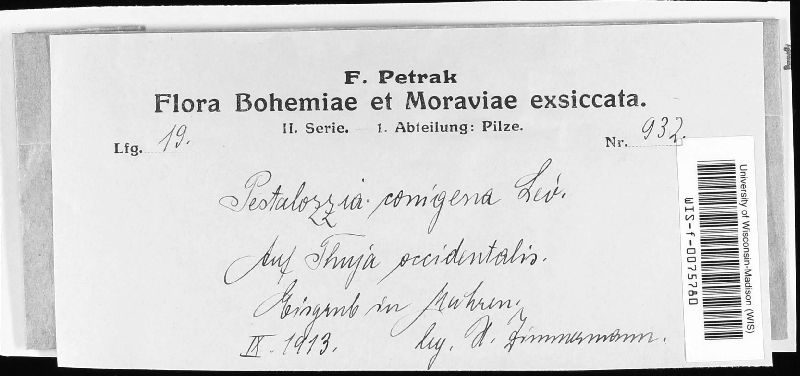 F. Petrak
Flora Bohemiae et Moraviae exsiccata.
II. Serie. — 1. Abteilung: Pilze.
Lfg. 19.
Nr. 932.
Pestalozzia conigena Lév.
Auf Thuja occidentalis.
Eisgrub in Mähren.
IX. 1913. leg. H. Zimmermann.
University of Wisconsin-Madison (WIS)
WIS-f-0075780